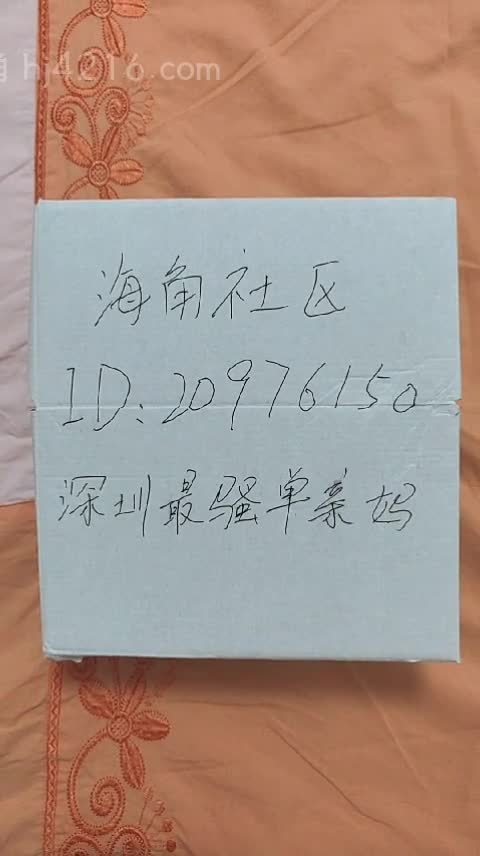 角 hj4216.com
海角社区
ID:20976150
深圳最骚单亲妈